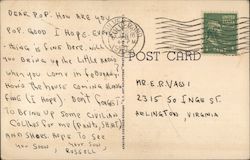 DEAR POP. HOW ARE YOU
POP. GOOD I HOPE. EVERY-
THING IS FINE HERE. WHEN
YOU BRING UP THE LITTLE
WHEN YOU COME IN FEBRUARY
HOWS THE HOUSE COMING ALONG
FINE (I HOPE). DON'T FORGET
TO BRING UP SOME CIVILIAN
CLOTHES FOR ME (PANTS, SHIRT)
AND SHOES. HOPE TO SEE
YOU SOON, YOUR SON,
RUSSELL
POST CARD
MR. E. R.
2315 SO INGE ST.
ARLINGTON VIRGINIA